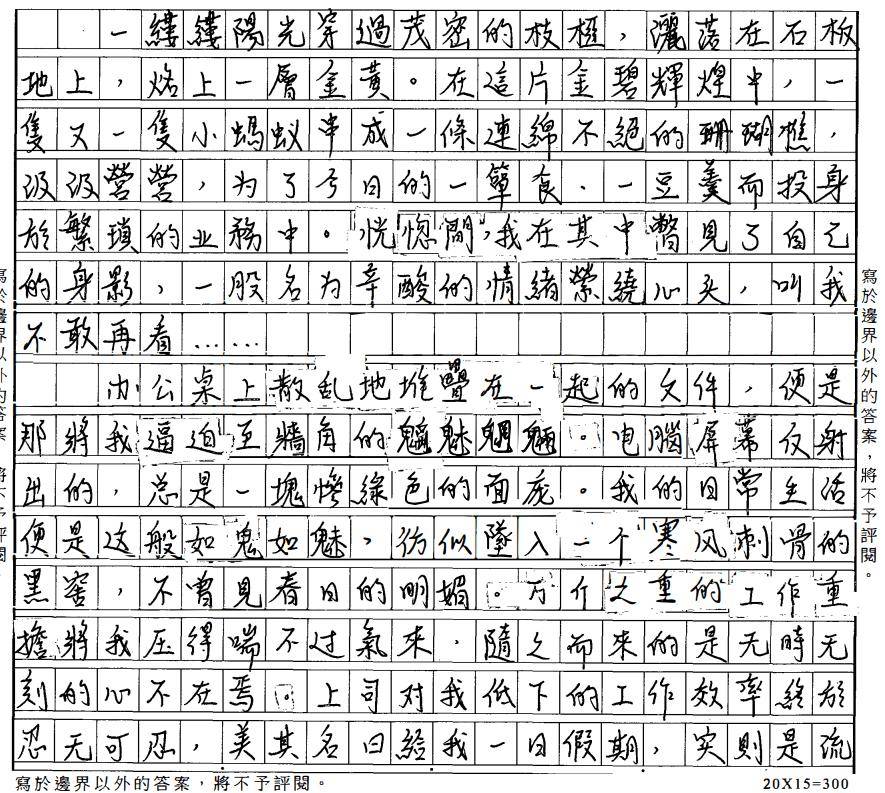 一縷縷陽光穿過茂密的枝椏，灑落在石板
地上，烙上一層金黃。在這片金碧輝煌中，一
隻又一隻小螞蚁串成一條連綿不絕的珊瑚樵，
汲汲營營，为了今日的一簞食、一豆羹而投身
於繁瑣的业務中。恍惚間，我在其中瞥見了自己
的身影，一股名为辛酸的情緒縈繞心头，叫我
不敢再看……
办公桌上散乱地堆疊在一起的文件，便是
那將我逼迫至牆角的魑魅魍魎。电腦屏幕反射
出的，总是一塊慘綠色的面庞。我的日常生活
便是这般如鬼如魅，彷似墜入一个寒风刺骨的
黑窖，不曾見春日的明媚。万斤之重的工作重
擔將我压得喘不过氣來，隨之而來的是无時无
刻的心不在焉。上司对我低下的工作效率終於
忍无可忍，美其名曰給我一日假期，实則是流
寫於邊界以外的答案，將不予評閱。
寫於邊界以外的答案，將不予評閱。
寫於邊界以外的答案，將不予評閱。
20X15=300